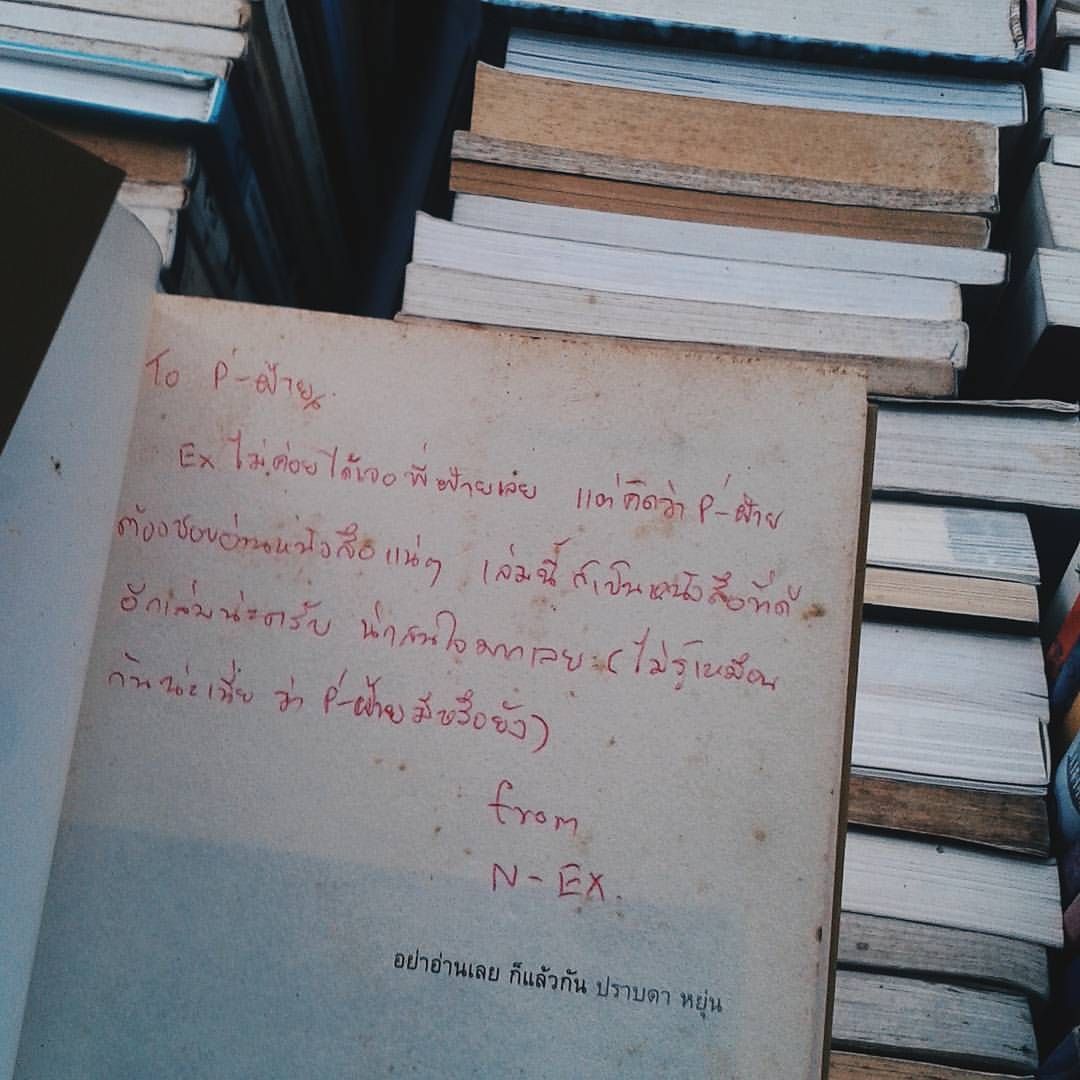 To P'-ฝ้าย
Ex ไม่ค่อยได้เจอพี่ฝ้ายเลย แต่คิดว่า P'-ฝ้าย
ต้องชอบอ่านหนังสือแน่ๆ เล่มนี้ก็เป็นหนังสือที่ดี
อีกเล่มน่ะครับ น่าสนใจมากเลย (ไม่รู้เหมือน
กันน่ะเนี่ย ว่า P'-ฝ้ายมีหรือยัง)
from
N-EX.
อย่าอ่านเลย ก็แล้วกัน ปราบดา หยุ่น